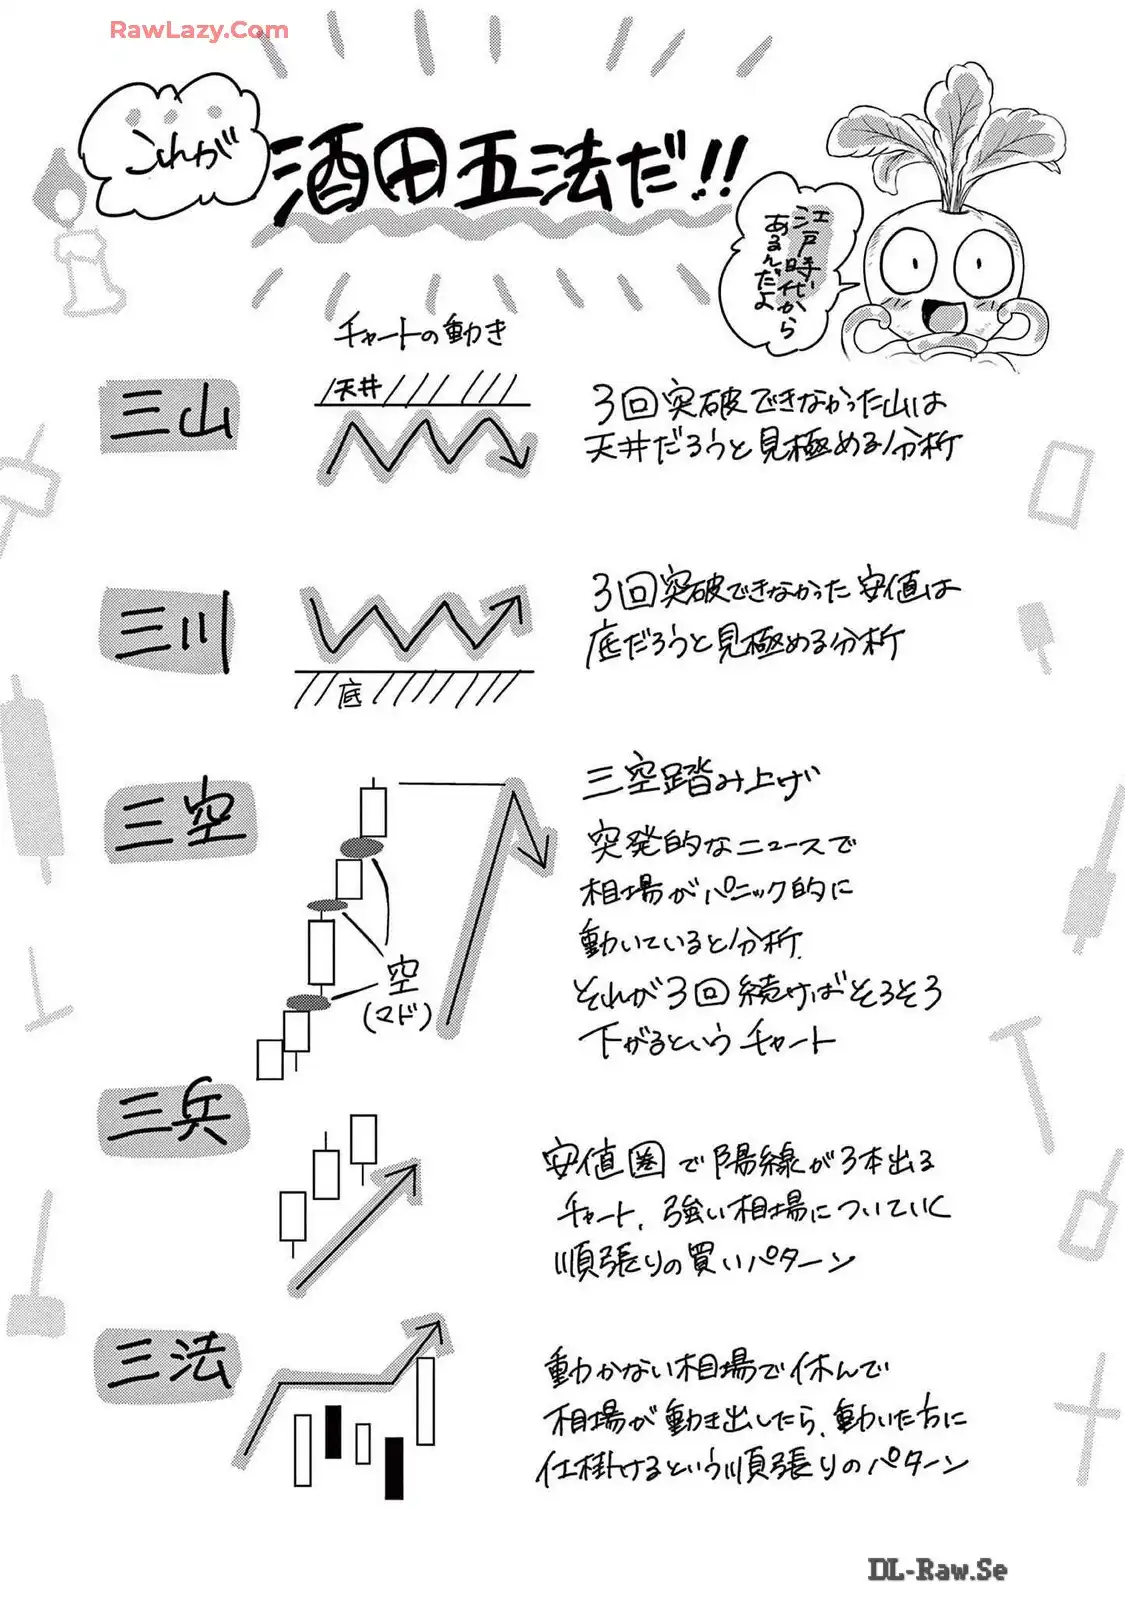 RawLazy.Com
これが
酒田五法だ!!
江戸時代から
あるんだよ
チャートの動き
三山
天井
3回突破できなかった山は
天井だろうと見極める分析
三川
底
3回突破できなかった安値は
底だろうと見極める分析
三空
空
(マド)
三空踏み上げ
突発的なニュースで
相場がパニック的に
動いていると分析.
それが3回続けばそろそろ
下がるというチャート
三兵
安値圏で陽線が3本出る
チャート、強い相場についていく
順張りの買いパターン
三法
動かない相場で休んで
相場が動き出したら、動いた方に
仕掛けるという順張りのパターン
DL-Raw.Se